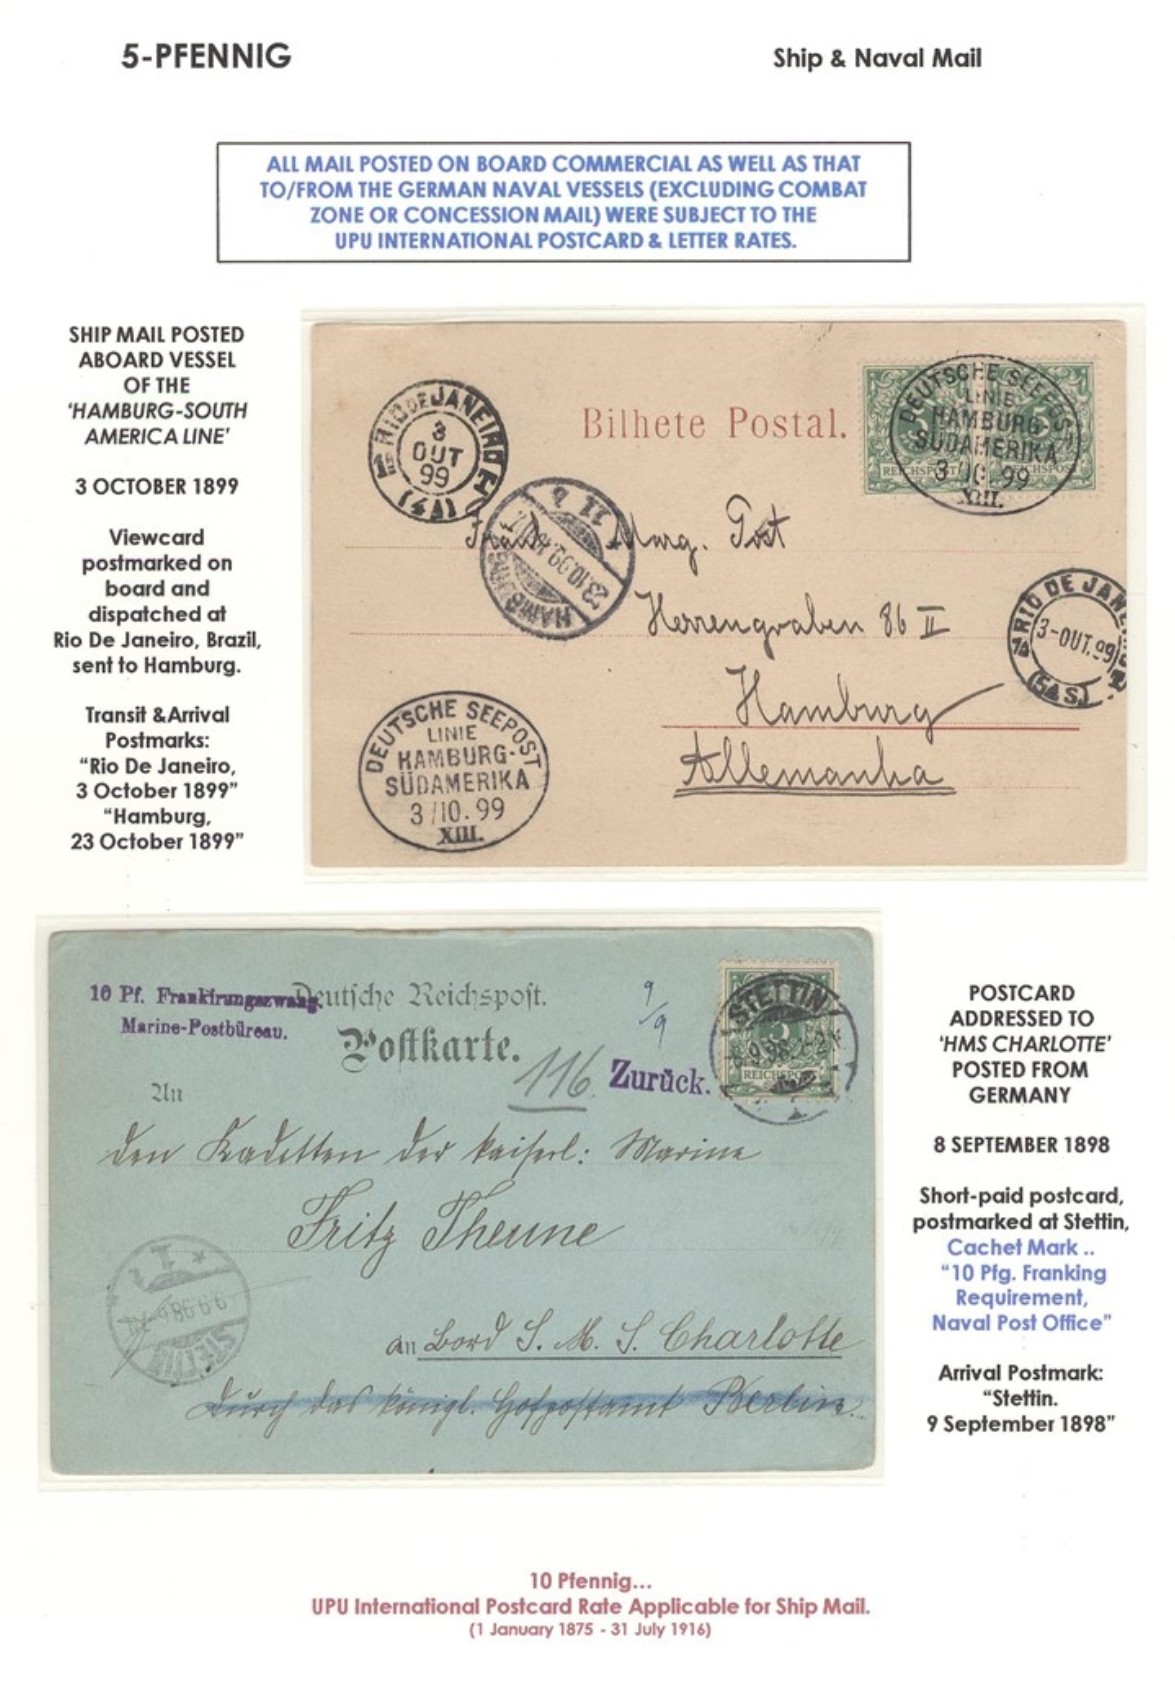 5-PFENNIG
Ship & Naval Mail
ALL MAIL POSTED ON BOARD COMMERCIAL AS WELL AS THAT
TO/FROM THE GERMAN NAVAL VESSELS (EXCLUDING COMBAT
ZONE OR CONCESSION MAIL) WERE SUBJECT TO THE
UPU INTERNATIONAL POSTCARD & LETTER RATES.
SHIP MAIL POSTED
ABOARD VESSEL
OF THE
'HAMBURG-SOUTH
AMERICA LINE'
3 OCTOBER 1899
Viewcard
postmarked on
board and
dispatched at
Rio De Janeiro, Brazil,
sent to Hamburg.
Transit &Arrival
Postmarks:
"Rio De Janeiro,
3 October 1899"
"Hamburg,
23 October 1899"
RIO DE JANEIRO
3
OUT
99
(4A)
Bilhete Postal.
REICHSPOST
REICHSPOST
DEUTSCHE SEEPOST
LINIE
HAMBURG-
SÜDAMERIKA
3/10.99
XIII.
Marg. Post
Herrengraben 86 II
Hamburg
Allemanha
RIO DE JANE
3-OUT.99
(5AS)
DEUTSCHE SEEPOST
LINIE
HAMBURG-
SÜDAMERIKA
3/10.99
XIII.
10 Pf. Frankirungszwang.
Marine-Postbüreau.
Deutsche Reichspost.
Postkarte.
9/9
116.
Zurück.
STETTIN
REICHSPOST
An
den Kadetten der kaiserl: Marine
Fritz Theune
an Bord S. M. S. Charlotte
durch das königl. Hofpostamt Berlin.
STETTIN
9.9.98
POSTCARD
ADDRESSED TO
'HMS CHARLOTTE'
POSTED FROM
GERMANY
8 SEPTEMBER 1898
Short-paid postcard,
postmarked at Stettin,
Cachet Mark ..
"10 Pfg. Franking
Requirement,
Naval Post Office"
Arrival Postmark:
"Stettin.
9 September 1898"
10 Pfennig...
UPU International Postcard Rate Applicable for Ship Mail.
(1 January 1875 - 31 July 1916)